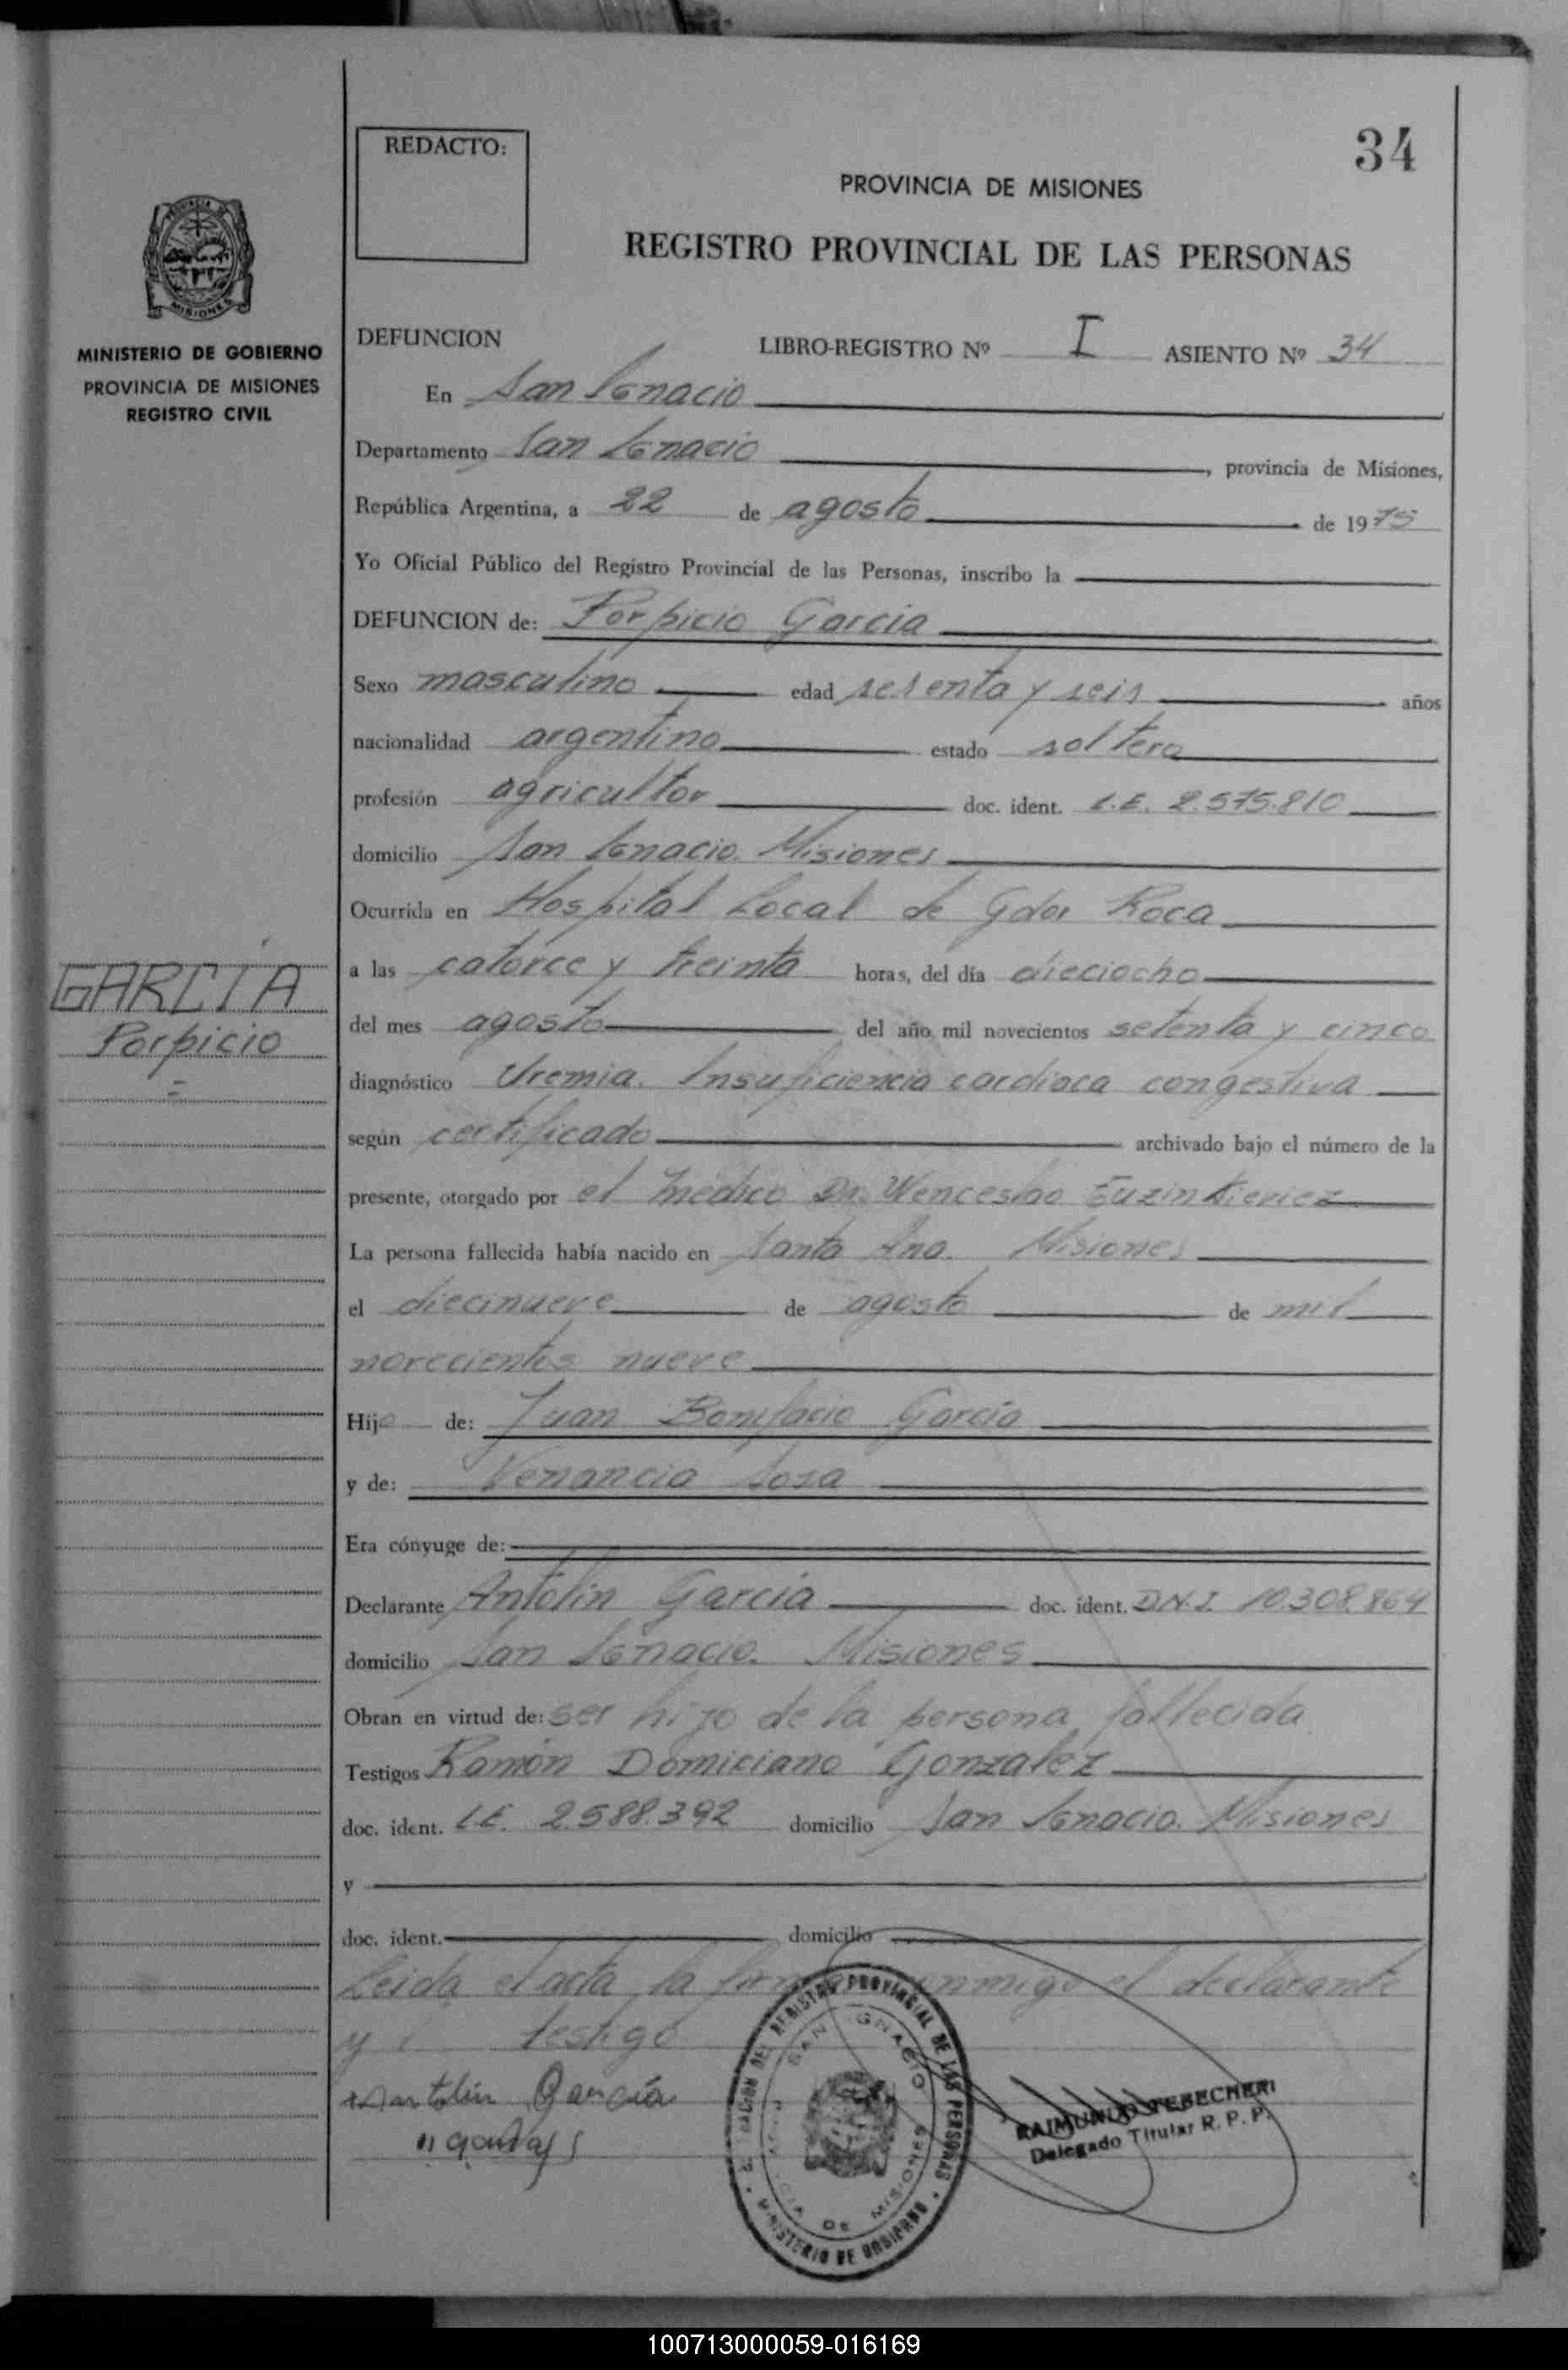 34
REDACTO:
PROVINCIA DE MISIONES
REGISTRO PROVINCIAL DE LAS PERSONAS
MISIONES
MINISTERIO DE GOBIERNO
PROVINCIA DE MISIONES
REGISTRO CIVIL
DEFUNCION LIBRO-REGISTRO Nº I ASIENTO Nº 34
En San Ignacio
Departamento San Ignacio, provincia de Misiones,
República Argentina, a 22 de agosto de 1975
Yo Oficial Público del Registro Provincial de las Personas, inscribo la
DEFUNCION de: Porpicio Garcia
Sexo masculino edad sesenta y seis años
nacionalidad argentino estado soltero
profesión agricultor doc. ident. L.E. 2.575.810
domicilio San Ignacio. Misiones
Ocurrida en Hospital Local de Gdor Roca
GARCIA
Porpicio
a las catorce y treinta horas, del día dieciocho
del mes agosto del año mil novecientos setenta y cinco
diagnóstico Uremia. Insuficiencia cardiaca congestiva
según certificado archivado bajo el número de la
presente, otorgado por el médico Dr. Wenceslao
La persona fallecida había nacido en Santa Ana. Misiones
el diecinueve de agosto de mil
novecientos nueve
Hijo de: Juan Bonifacio García
y de: Venancia Sosa
Era cónyuge de:
Declarante Antolin García doc. ident. D.N.I. 10.308.864
domicilio San Ignacio. Misiones
Obran en virtud de: ser hijo de la persona fallecida
Testigos Ramón Domiciano Gonzalez
doc. ident. L.E. 2.588.392 domicilio San Ignacio. Misiones
y
doc. ident. domicilio
Leida el acta la conmigo el declarante
y testigo
Antolin García
REGISTRO PROVINCIAL DE LAS PERSONAS
SAN IGNACIO
DE MISIONES
MINISTERIO DE GOBIERNO
RAIMUNDO
Delegado Titular R. P. P.
100713000059-016169